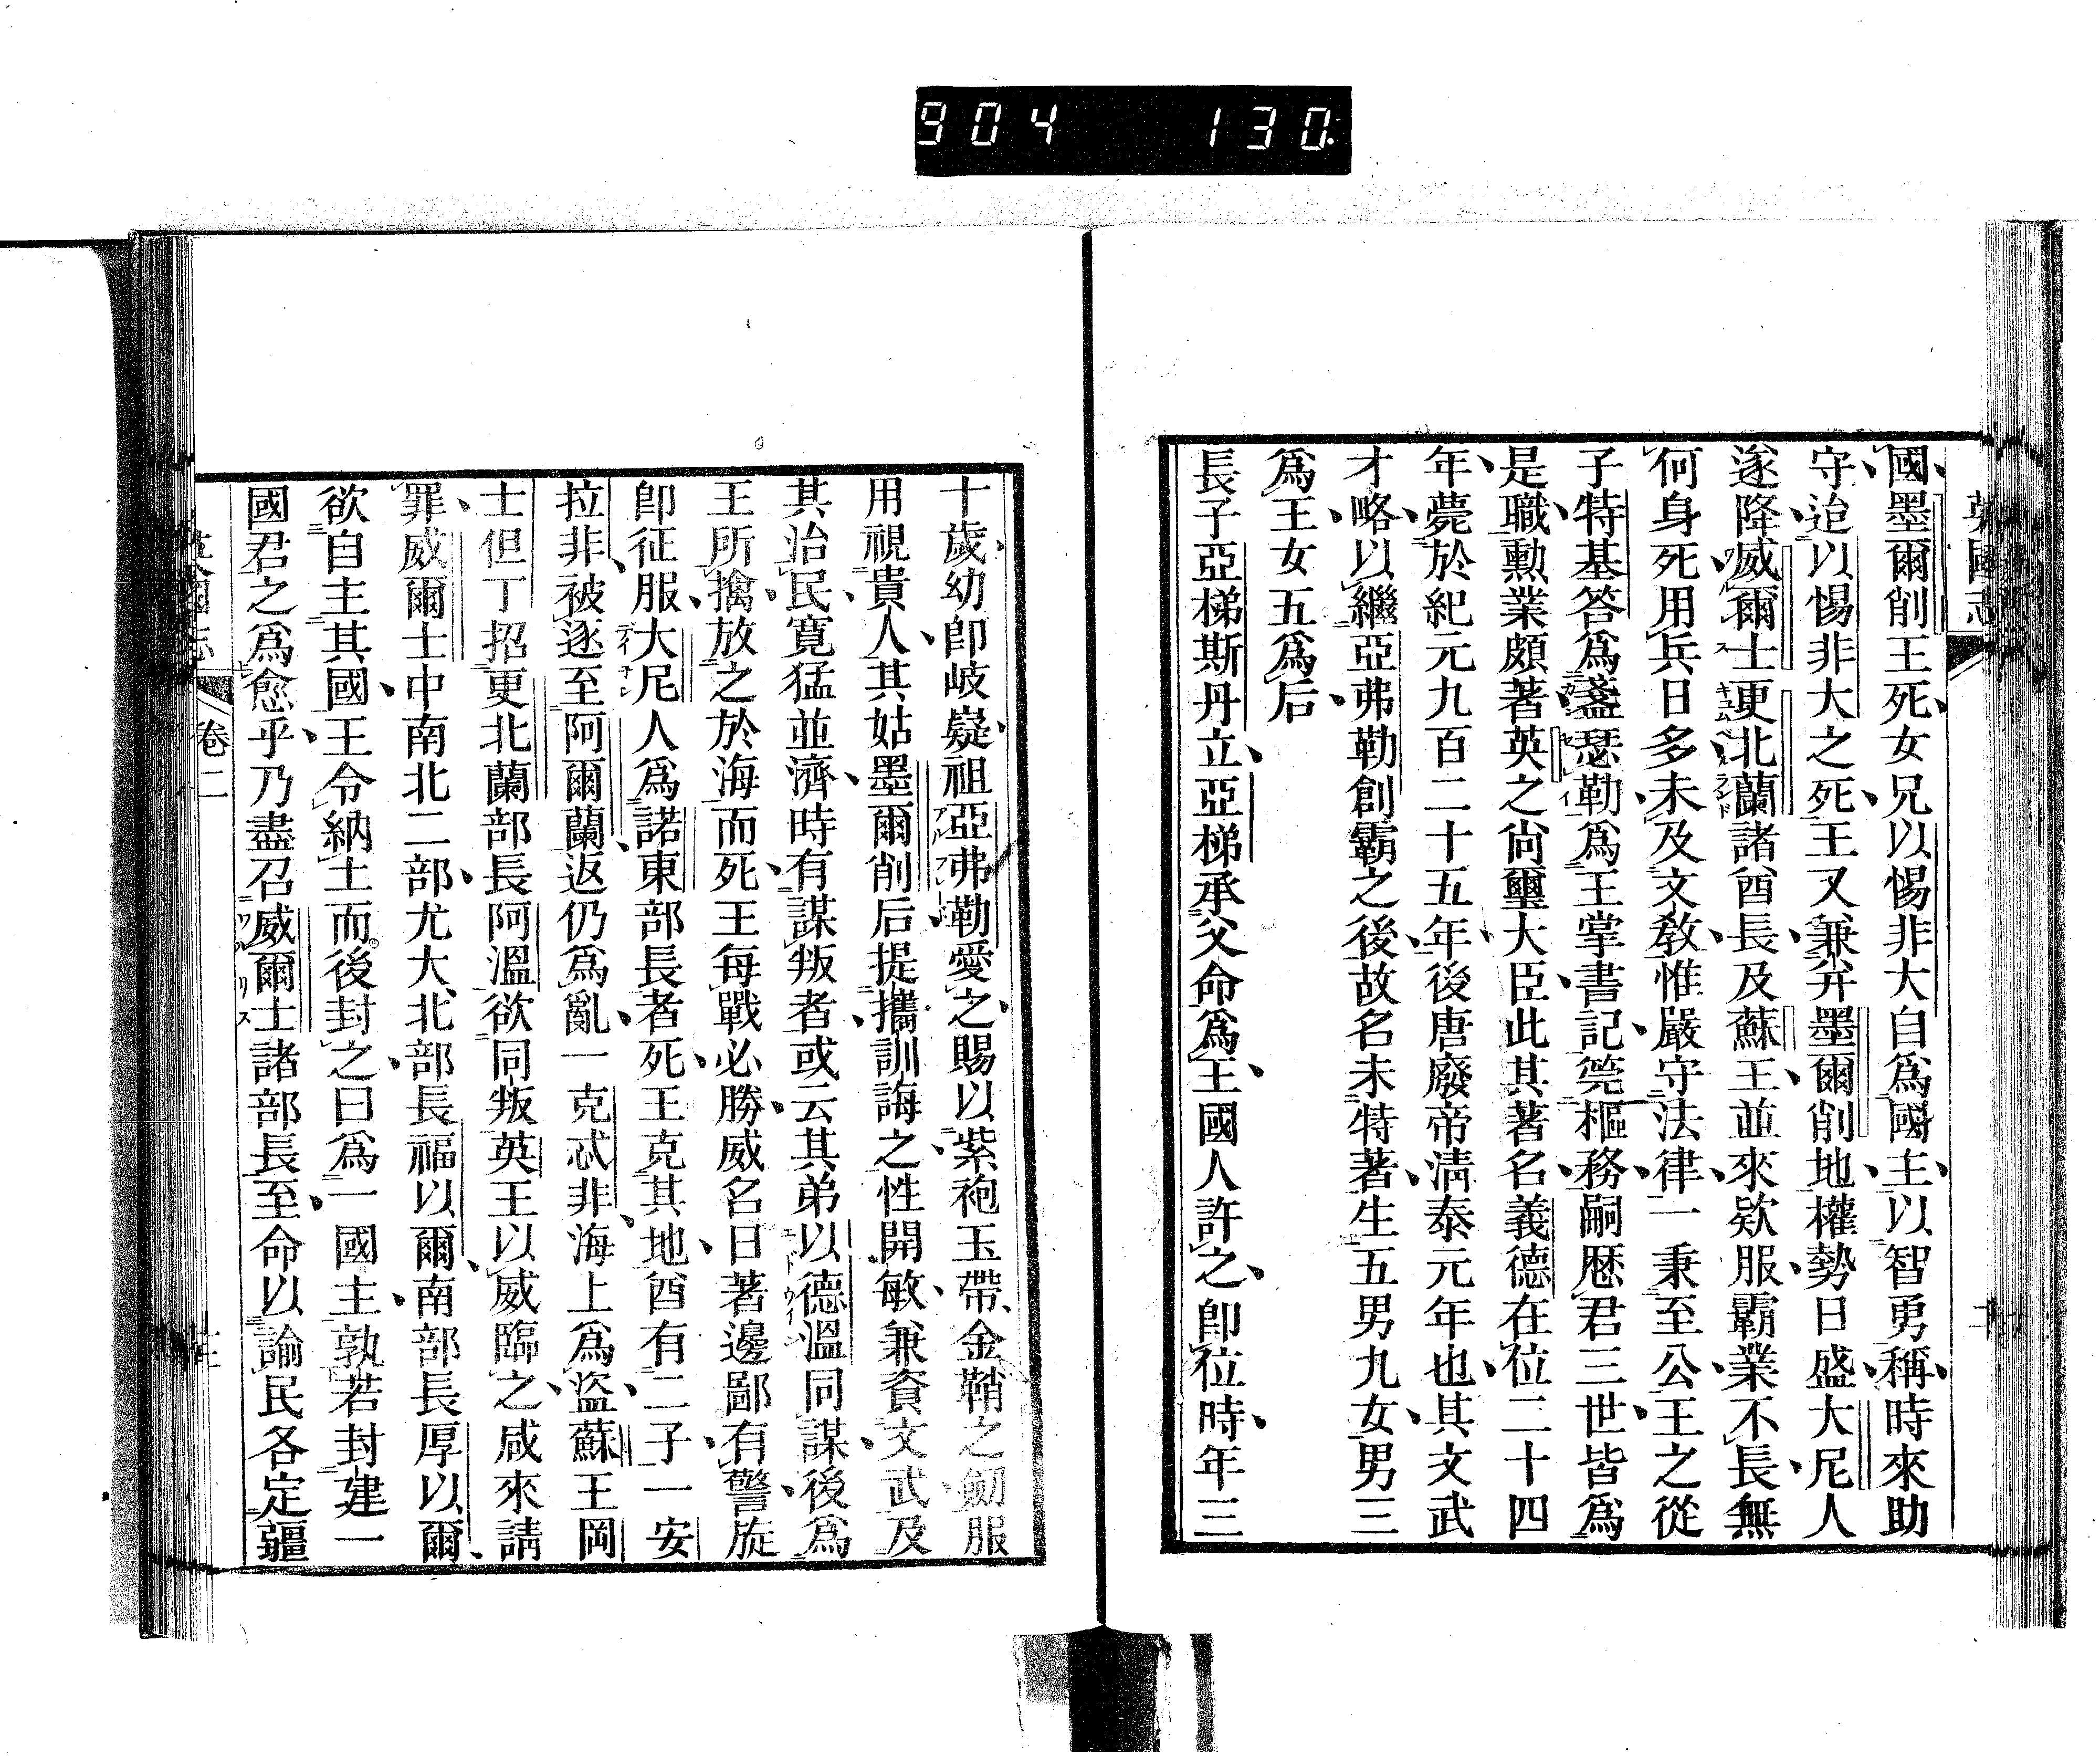 904 130.
英國志
國墨爾削王死女兄以惕非大自爲國主以智勇稱時來助
守迨以惕非大之死王又兼并墨爾削地權勢日盛大尼人
遂降威爾士更北蘭諸酋長及蘇王並來欵服霸業不長無
何身死用兵日多未及文敎惟嚴守法律一秉至公王之從
子特基答爲盞瑟勒爲王掌書記筦樞務嗣歴君三世皆爲
是職勳業頗著英之尙璽大臣此其著名義德在位二十四
年薨於紀元九百二十五年年後唐廢帝淸泰元年也其文武
才略以繼亞弗勒創霸之後故名未特著生五男九女男三
爲王女五爲后
長子亞梯斯丹立亞梯承父命爲王國人許之卽位時年三
十歲幼卽岐嶷祖亞弗勒愛之賜以紫袍玉帶金鞘之劒服
用視貴人其姑墨爾削后提攜訓誨之性開敏兼資文武及
其治民寬猛並濟時有謀叛者或云其弟以德溫同謀後爲
王所擒放之於海而死王每戰必勝威名日著邊鄙有警旋
卽征服大尼人爲諾東部長者死王克其地酋有二子一安
拉非被逐至阿爾蘭返仍爲亂一克忒非海上爲盜蘇王岡
士但丁招更北蘭部長阿溫欲同叛英王以威臨之咸來請
罪威爾士中南北二部尤大北部長福以爾南部長厚以爾
欲自主其國王令納土而後封之曰爲一國主孰若封建一
國君之爲愈乎乃盡召威爾士諸部長至命以諭民各定疆
卷二